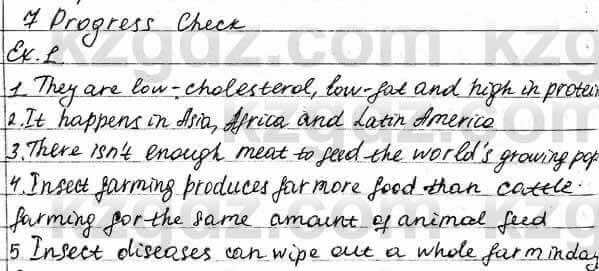 7 Progress Check
Ex. 1.
1. They are low-cholesterol, low-fat and high in protein
2. It happens in Asia, Africa and Latin America
3. There isn't enough meat to feed the world's growing pop
4. Insect farming produces far more food than cattle
farming for the same amount of animal feed
5 Insect diseases can wipe out a whole farm in day